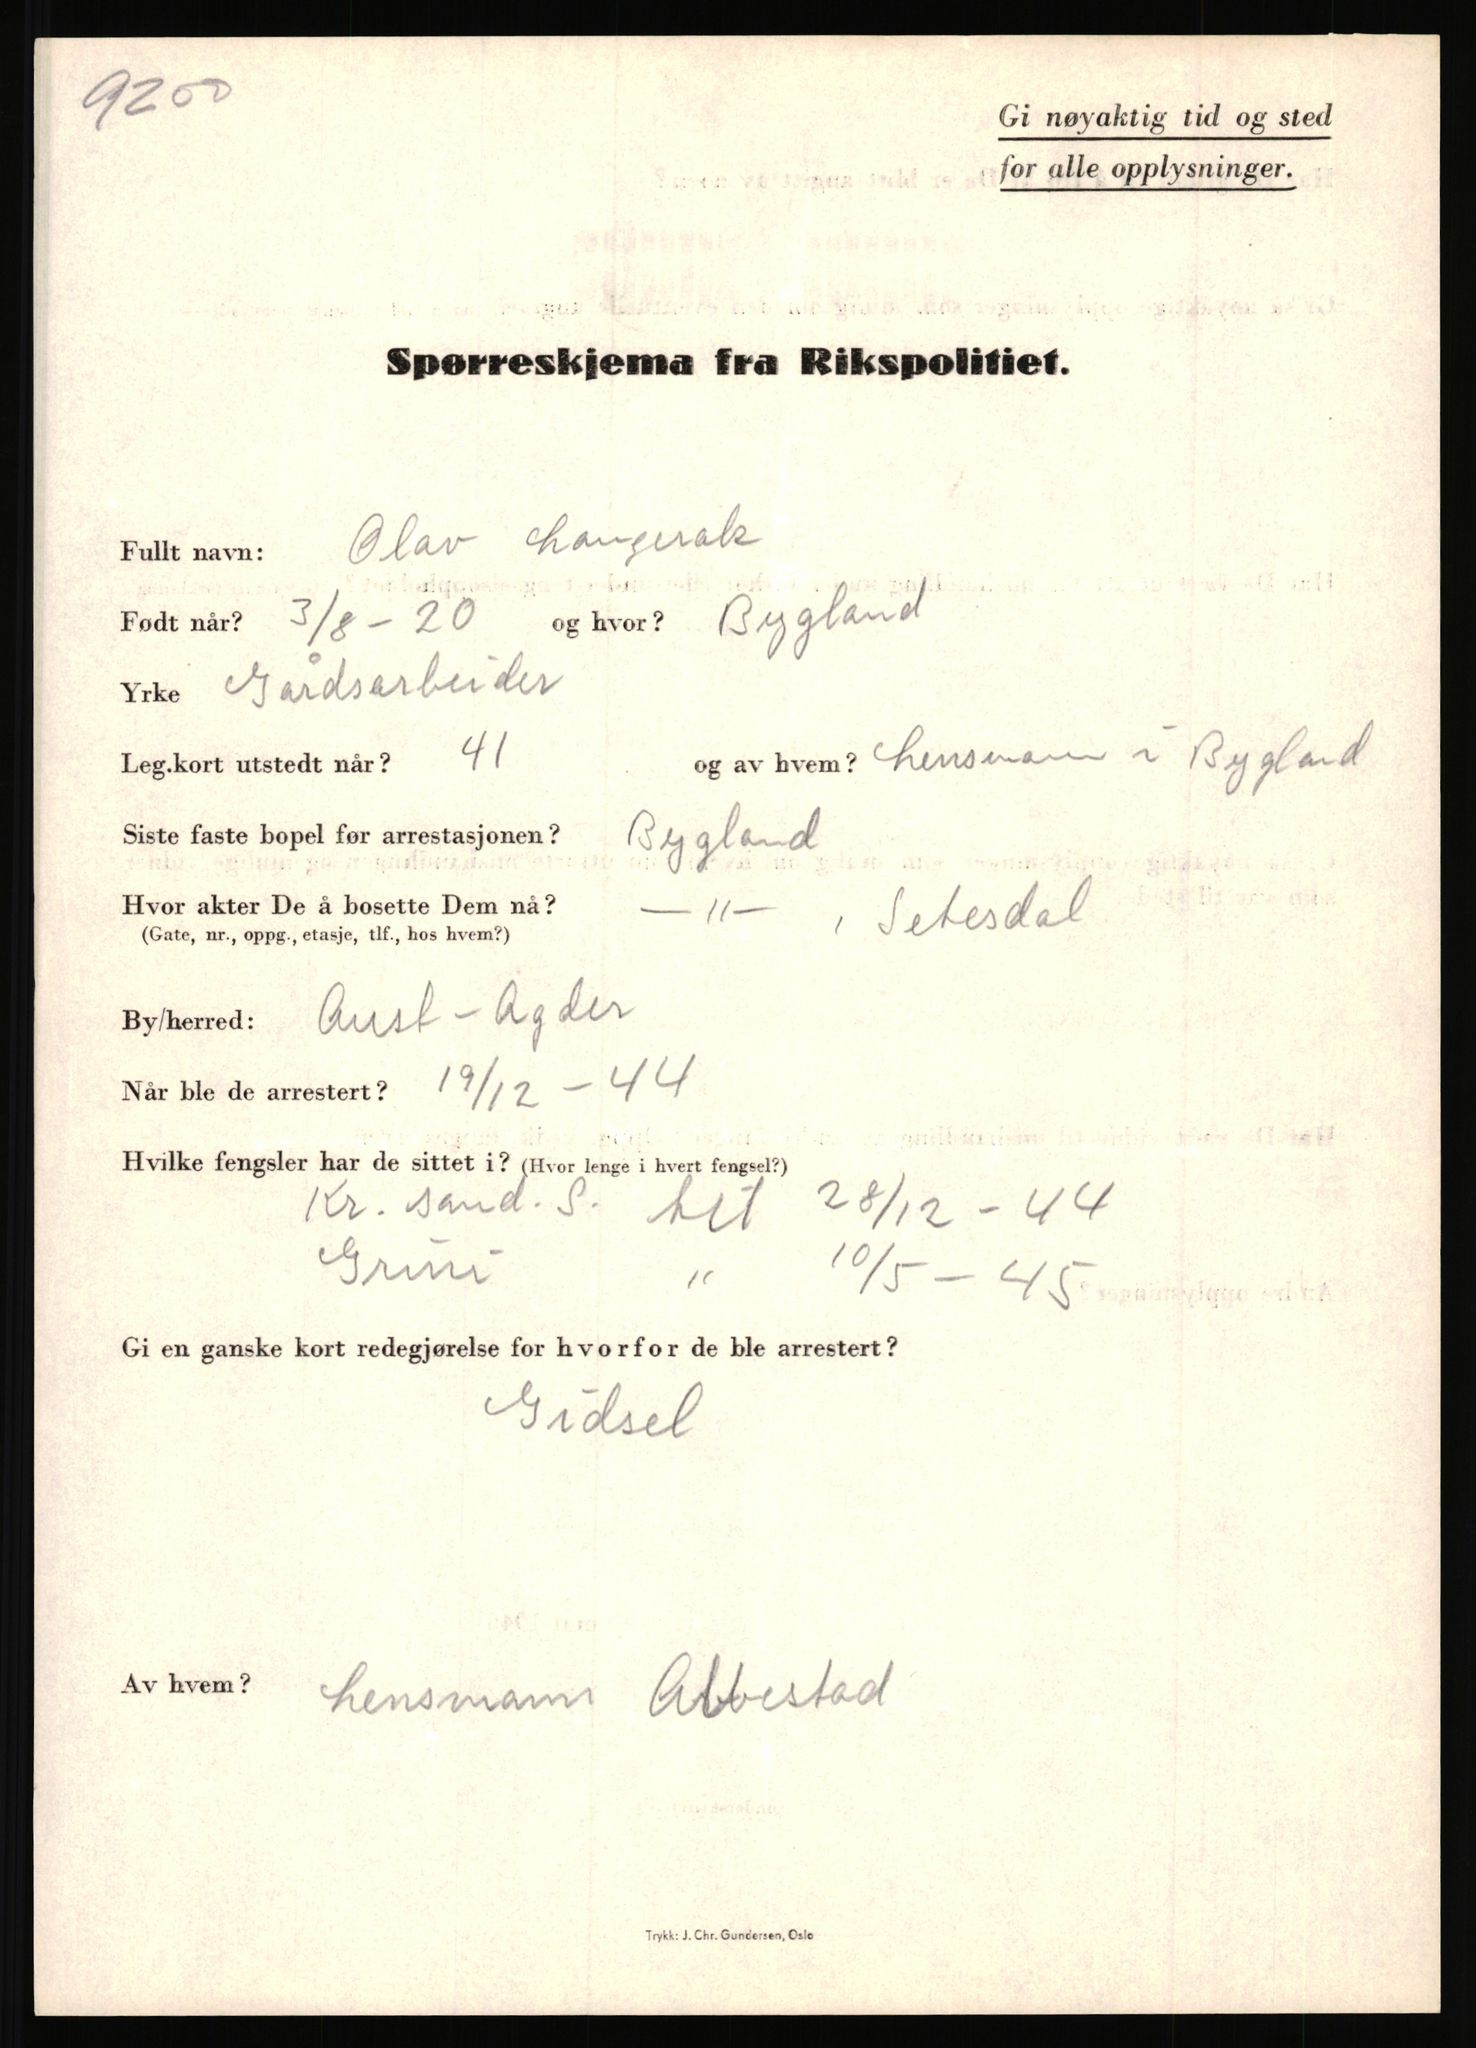 9200
Gi nøyaktig tid og sted
for alle opplysninger.
Spørreskjema fra Rikspolitiet.
Fullt navn: Olav Langerak
Født når? 3/8 - 20 og hvor? Bygland
Yrke Gårdsarbeider
Leg.kort utstedt når? 41 og av hvem? Lensmann i Bygland
Siste faste bopel før arrestasjonen? Bygland
Hvor akter De å bosette Dem nå? — " — , Setesdal
(Gate, nr., oppg., etasje, tlf., hos hvem?)
By/herred: Aust-Agder
Når ble de arrestert? 19/12 - 44
Hvilke fengsler har de sittet i? (Hvor lenge i hvert fengsel?)
Kr. sand. S. til 28/12 - 44
Grini " 10/5 - 45
Gi en ganske kort redegjørelse for hvorfor de ble arrestert?
Gidsel
Av hvem? Lensmann
Trykk: J. Chr. Gundersen, Oslo